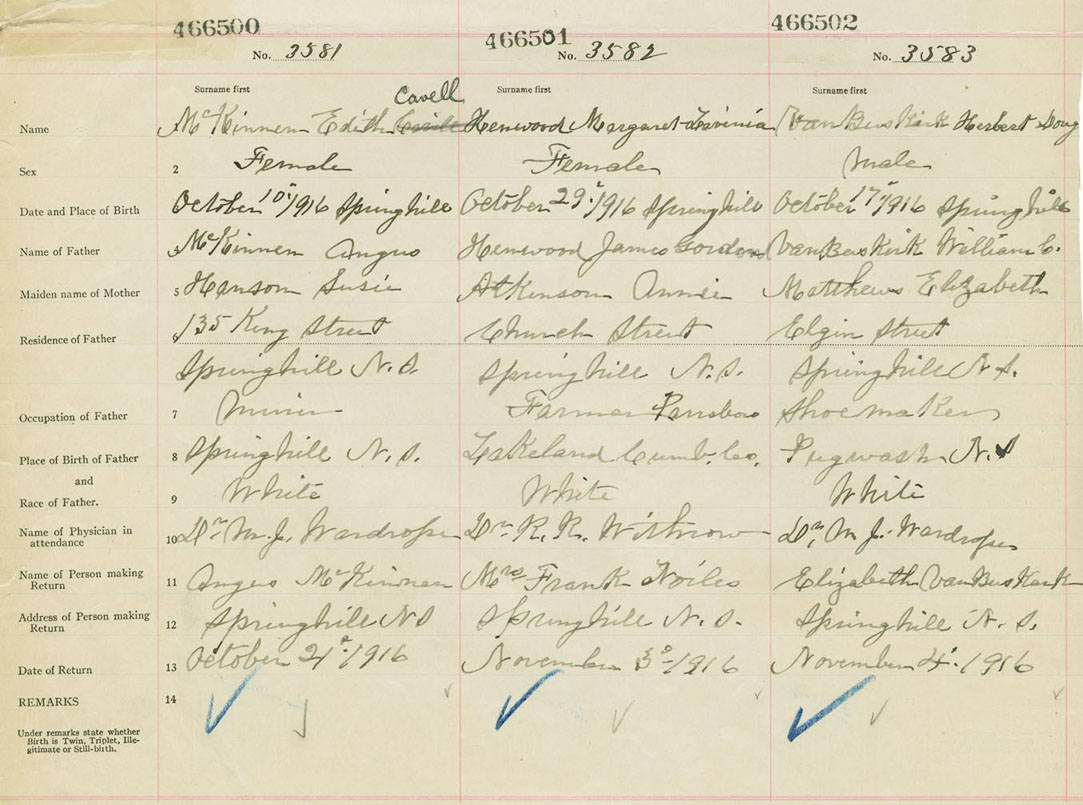 466500 466501 466502
No. 3581 No. 3582 No. 3583
Surname first Surname first Surname first
Cavell
Name McKinnen Edith Henwood Margaret Lavinia VanBuskirk Herbert Doug
Sex 2 Female Female Male
Date and Place of Birth October 10th 1916 Springhill October 29th 1916 Springhill October 17th 1916 Springhill
Name of Father McKinnen Angus Henwood James Gordon VanBuskirk William C.
Maiden name of Mother 5 Henson Susie Atkinson Annie Matthews Elizabeth
Residence of Father 135 King Street Church Street Elgin Street
Springhill N.S. Springhill N.S. Springhill N.S.
Occupation of Father 7 Miner Farmer Parrsboro Shoemaker
Place of Birth of Father 8 Springhill N.S. Lakeland Cumb. Co. Pugwash N.S
and
Race of Father. 9 White White White
Name of Physician in attendance 10 Dr M.J. Wardrope Dr R.R. Withrow Dr, M J. Wardrope
Name of Person making Return 11 Angus McKinnen Mrs Frank Noiles Elizabeth VanBuskirk
Address of Person making Return 12 Springhill NS Springhill N.S. Springhill N.S.
Date of Return 13 October 21st 1916 November 3d 1916 November 4th 1916
REMARKS 14
Under remarks state whether
Birth is Twin, Triplet, Ille-
gitimate or Still-birth.